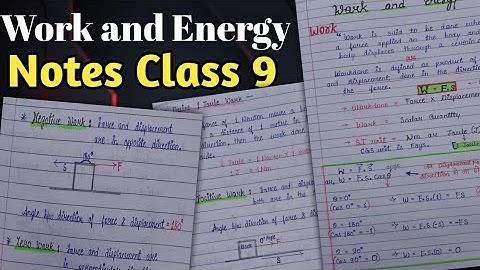 Work and Energy
Notes Class 9
* Negative Work: Force and displacement
are in opposite direction.
180°
S
F
Angle b/w direction of force & displacement = 180°
* Zero Work: Force and displacement
are in perpendicular
1 Joule Work
force of 1 Newton moves a
a distance of 1 metre in
then the work done
1 Joule = 1 Newton X 1
1J = 1Nm
Positive Work: Force and
both are in the
0° Angle
F
S
Angle b/w direction of force
Work and energy
Work
"Work is said to be done when
a force applied on the body and
body displaces through a certain
OR
Workdone is defined as product of
and displacement done in the direction
the force.
W = F.S
→ Workdone = Force x Displacement
→ Work = Scalar Quantity
→ S.I unit = Nm or Joule (J)
CGS unit is Ergs.
W = F.S
θ = 0°
(Cos 0° = 1)
→ W = F.S(1) = FS
θ = 180°
(Cos 180° = -1)
→ W = F.S(-1) = -FS
θ = 90°
(Cos 90° = 0)
→ W = F.S(0) = 0